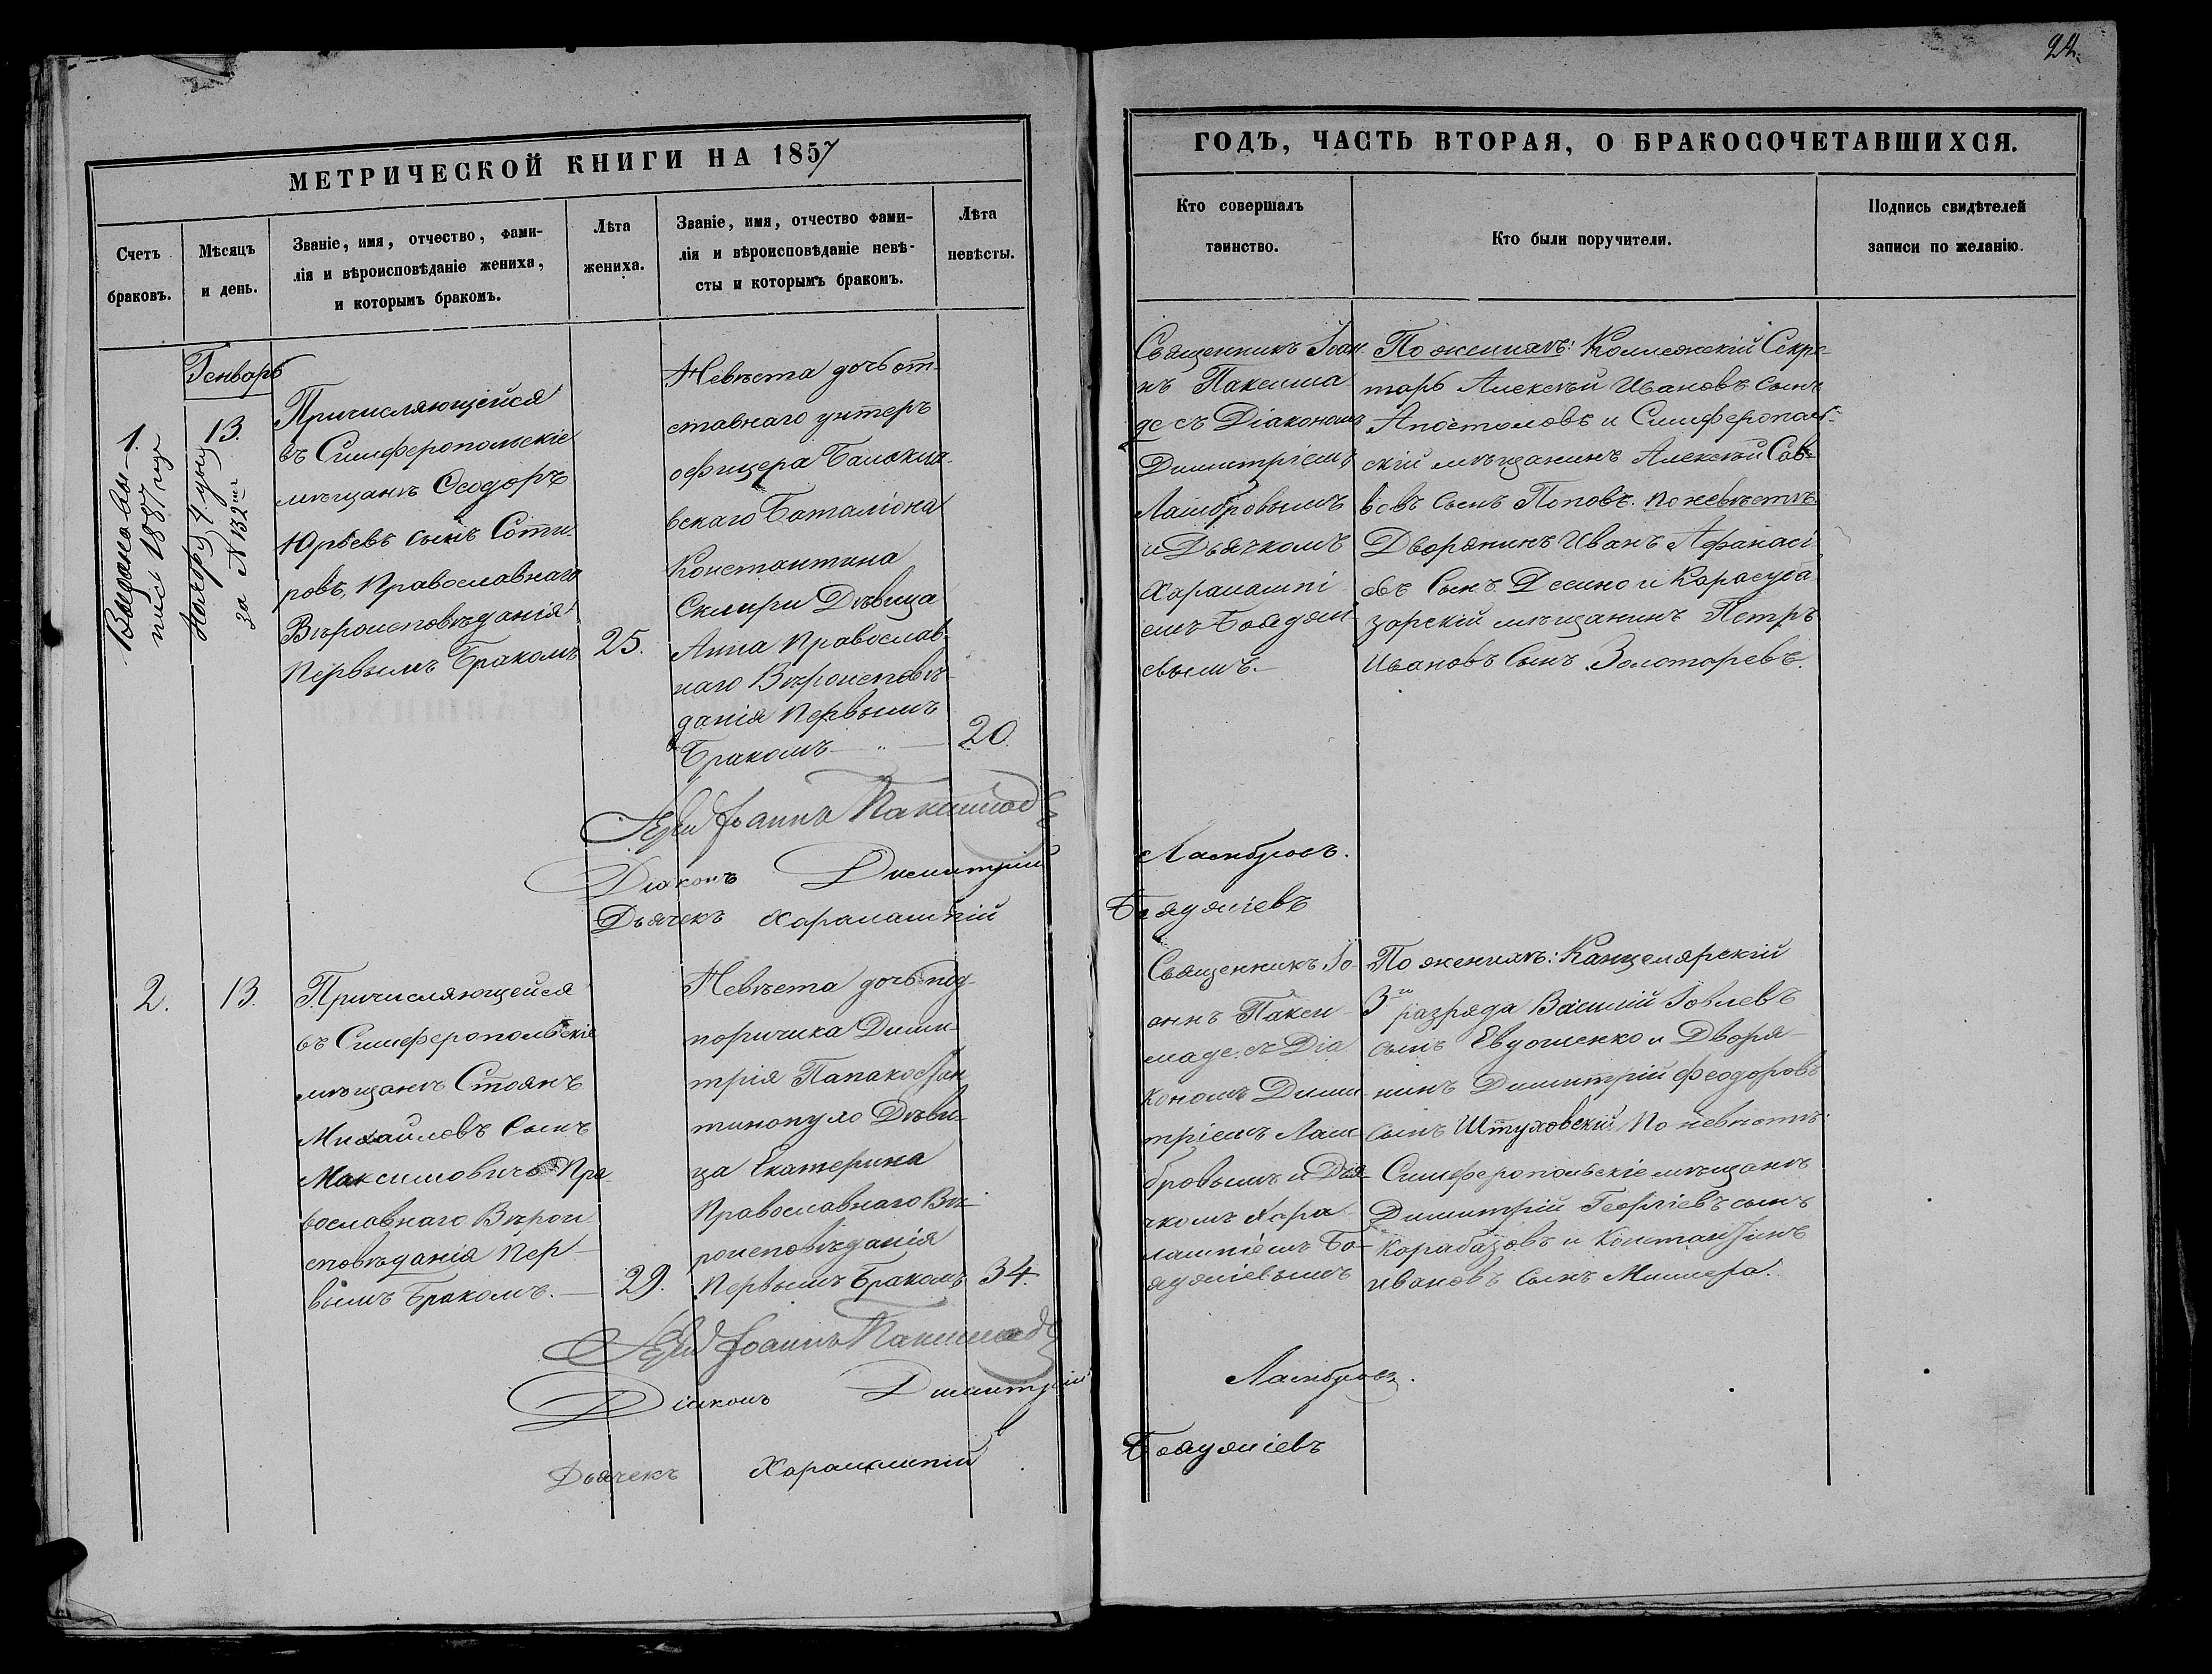 24.
МЕТРИЧЕСКОЙ КНИГИ НА 1857
Счетъ
браковъ.
Мѣсяцъ
и день.
Званіе, имя, отчество, фами-
лія и вѣроисповѣданіе жениха,
и которымъ бракомъ.
Лѣта
жениха.
Званіе, имя, отчество фами-
лія и вѣроисповѣданіе невѣ-
сты и которымъ бракомъ.
Лѣта
невѣсты.
ГОДЪ, ЧАСТЬ ВТОРАЯ, О БРАКОСОЧЕТАВШИХСЯ.
Кто совершалъ
таинство.
Кто были поручители.
Подпись свидѣтелей
записи по желанію.
Генварь
1.
13.
пись 1887
за N 132
Причисляющейся
въ Симферопольскіе
мѣщанѣ Ѳеодоръ
Юрьевъ сынъ Соти-
ровъ, Православнаго
Вѣроисповѣданія
Первымъ Бракомъ
25.
Невѣста дочь от-
ставнаго унтеръ
офицера Балакла-
вскаго Баталіона
Константина
Склири Дѣвица
Анна Православ-
наго Вѣроисповѣ-
данія Первымъ
Бракомъ
20.
Священникъ Іоан-
нъ Паксима-
де съ Діакономъ
Димитріемъ
Ламбровымъ
и Дьячкомъ
Харалампі-
емъ Баяджі-
евымъ.
По женихѣ: Коллежскій Секре-
тарь Алексѣй Ивановъ сынъ
Апостоловъ и Симферополь-
скій мѣщанинъ Алексѣй Сав-
вовъ сынъ Поповъ. По невѣстѣ
Дворянинъ Иванъ Афанасі-
евъ Сынъ Десино и Карасуба-
зарскій мѣщанинъ Петръ
Ивановъ Сынъ Золотаревъ.
Іерей Іоаннъ Паксимаде
Діаконъ Димитрій Ламбровъ.
Дьячекъ Харалампій Баяджіевъ
2.
13.
Причисляющейся
въ Симферопольскіе
мѣщанѣ Стоянъ
Михайловъ Сынъ
Максимовичъ Пра-
вославнаго Вѣрои-
сповѣданія Пер-
вымъ Бракомъ.
29.
Невѣста дочь под-
поручика Дими-
трія Папакостан-
тинопуло Дѣви-
ца Екатерина
Православнаго Вѣ-
роисповѣданія
Первымъ Бракомъ
34.
Священникъ Іо-
аннъ Пакси-
маде съ Діа-
кономъ Дими-
тріемъ Лам-
бровымъ и Дья-
чкомъ Хара-
лампіемъ Ба-
яджіевымъ
По женихѣ: Канцелярскій
3го разряда Василій Іовлевъ
сынъ Евдошенко и Дворя-
нинъ Димитрій Феодоровъ
сынъ Штуховскій По невѣстѣ:
Симферопольскіе мѣщанѣ
Димитрій Георгіевъ сынъ
Карабазовъ и Константинъ
Ивановъ Сынъ Миллера.
Іерей Іоаннъ Паксимаде
Діаконъ Димитрій Ламбровъ.
Дьячекъ Харалампій Баяджіевъ